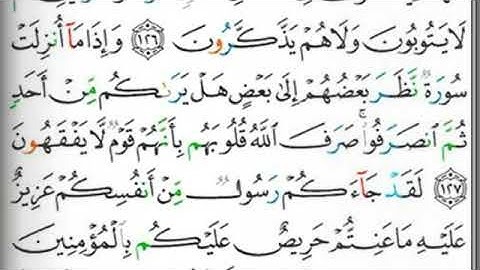 لَا يَتُوبُونَ وَلَا هُمْ يَذَّكَّرُونَ ﴿١٢٦﴾ وَإِذَا مَآ أُنزِلَتْ
سُورَةٌ نَّظَرَ بَعْضُهُمْ إِلَىٰ بَعْضٍ هَلْ يَرَىٰكُم مِّنْ أَحَدٍ
ثُمَّ ٱنصَرَفُوا۟ ۚ صَرَفَ ٱللَّهُ قُلُوبَهُم بِأَنَّهُمْ قَوْمٌ لَّا يَفْقَهُونَ
﴿١٢٧﴾ لَقَدْ جَآءَكُمْ رَسُولٌ مِّنْ أَنفُسِكُمْ عَزِيزٌ
عَلَيْهِ مَا عَنِتُّمْ حَرِيصٌ عَلَيْكُم بِٱلْمُؤْمِنِينَ